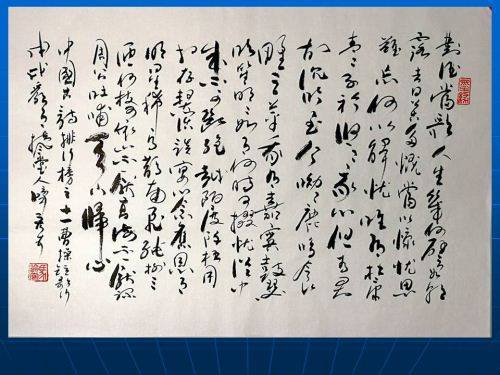 對酒當歌人生幾何譬如朝
露去日苦多慨當以慷憂思
難忘何以解憂唯有杜康
青青子衿悠悠我心但為君
故沉吟至今呦呦鹿鳴食
野之苹我有嘉賓鼓瑟
吹笙明明如月何時可掇憂從中
來不可斷絕越陌度阡枉用
相存契闊談讌心念舊恩月
明星稀烏鵲南飛繞樹三
匝何枝可依山不厭高海不厭深
周公吐哺天下歸心
中國古詩排行榜之十一曹操短歌行